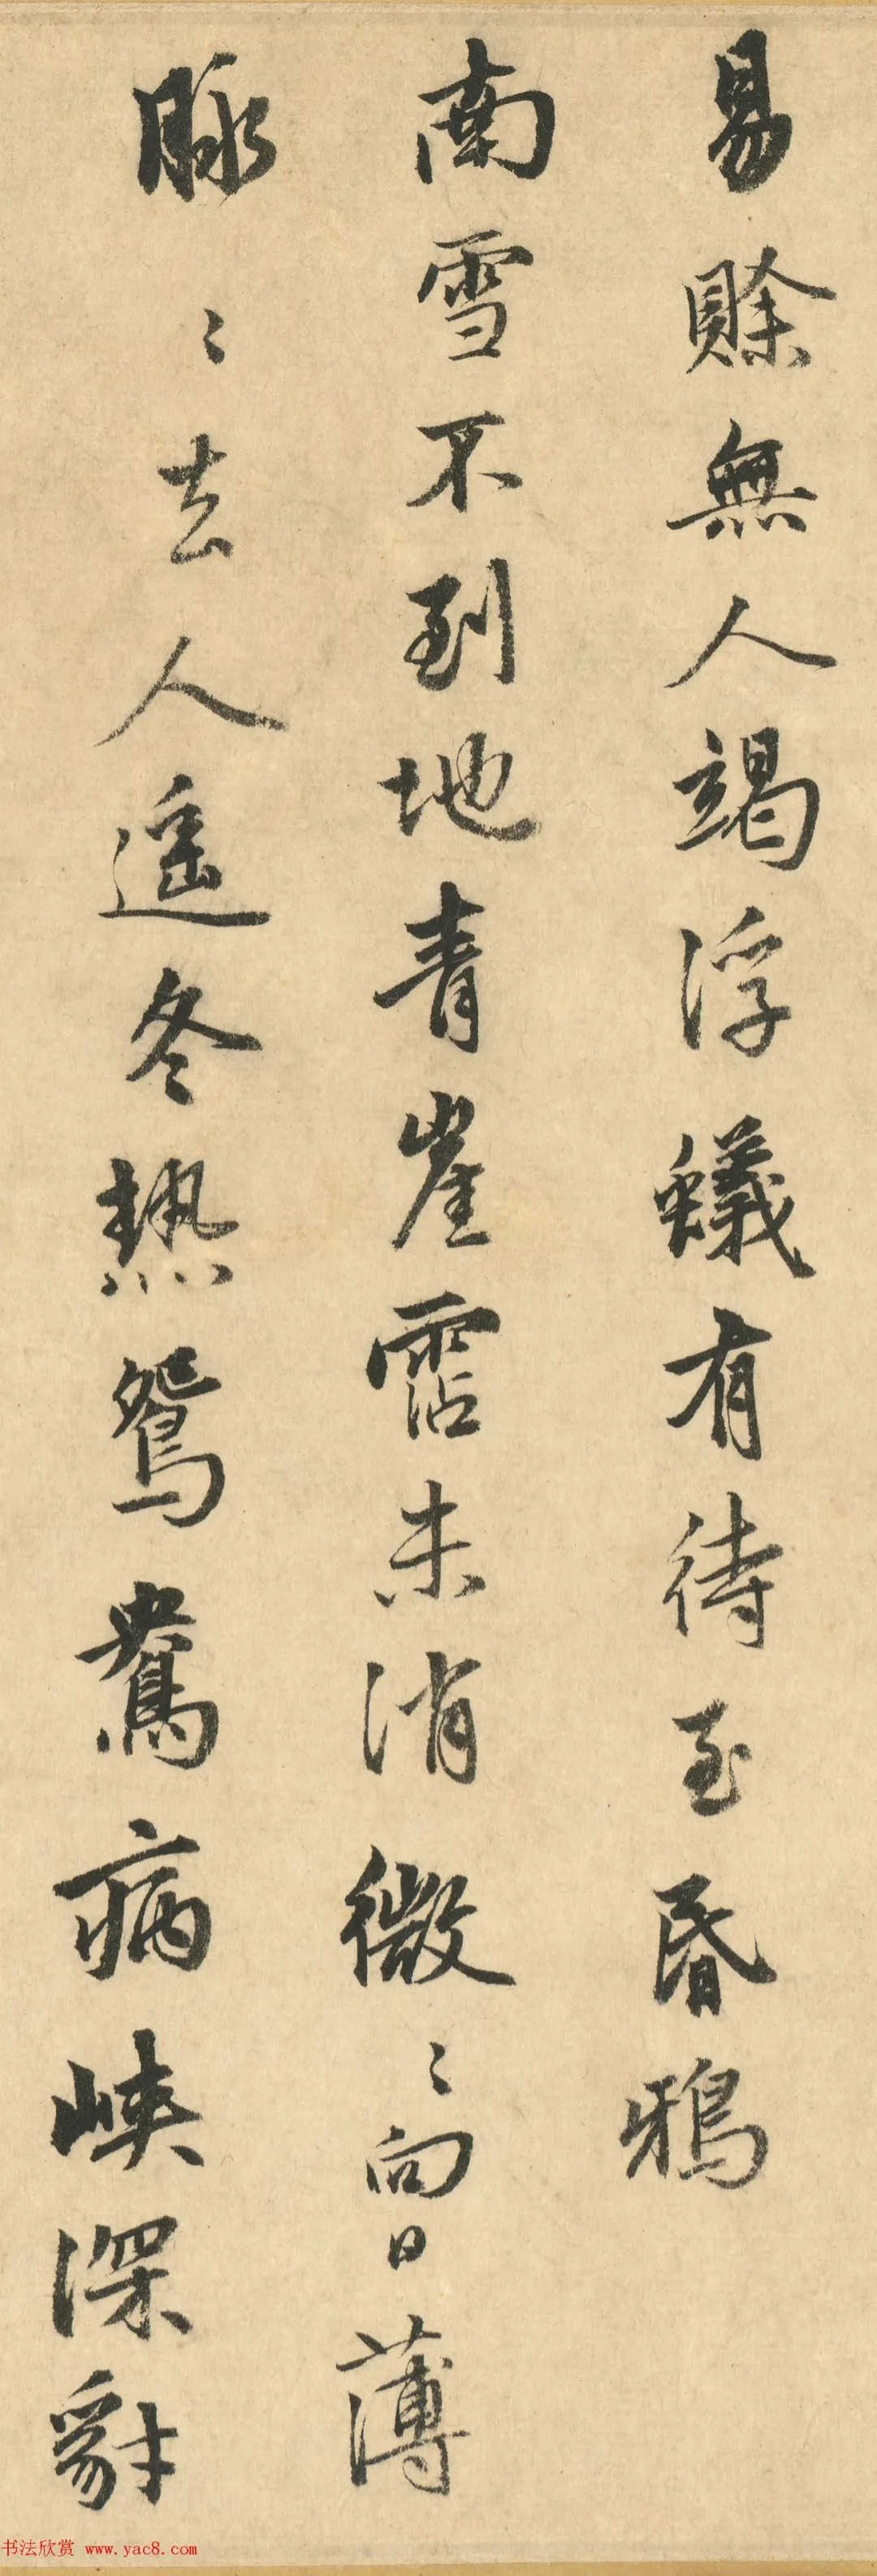 易賖無人竭浮蟻有待至昏鴉
南雪不到地青崖霑未消微〻向日薄
脉〻去人遥冬熱鴛鴦病峽深豺
书法欣赏 www.yac8.com